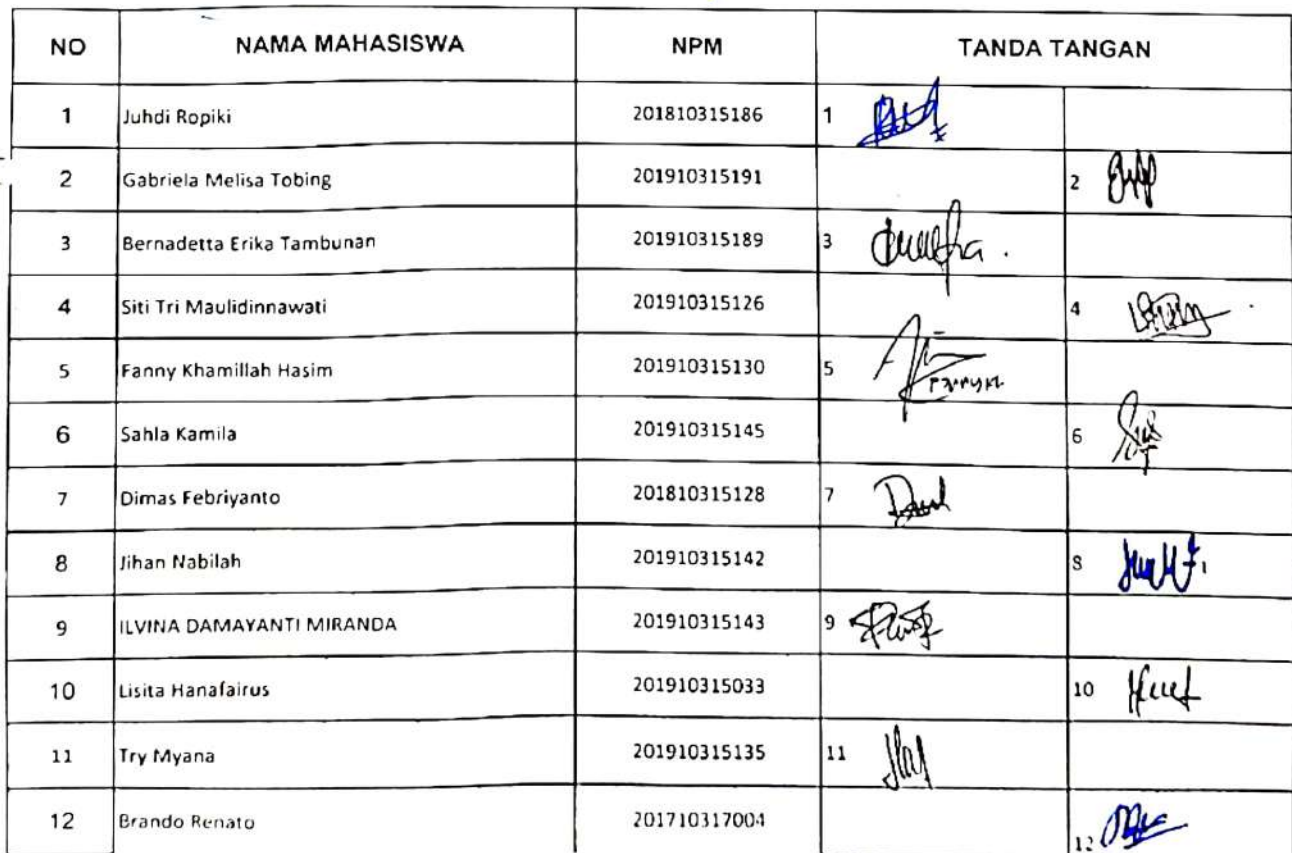 NO NAMA MAHASISWA NPM TANDA TANGAN
1 Juhdi Ropiki 201810315186 1
2 Gabriela Melisa Tobing 201910315191 2
3 Bernadetta Erika Tambunan 201910315189 3
4 Siti Tri Maulidinnawati 201910315126 4
5 Fanny Khamillah Hasim 201910315130 5
6 Sahla Kamila 201910315145 6
7 Dimas Febriyanto 201810315128 7
8 Jihan Nabilah 201910315142 8
9 ILVINA DAMAYANTI MIRANDA 201910315143 9
10 Lisita Hanafairus 201910315033 10
11 Try Myana 201910315135 11
12 Brando Renato 201710317004 12